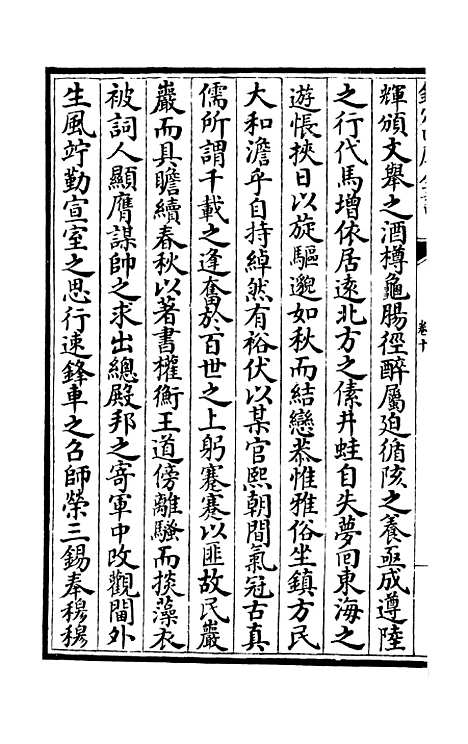 輝頒文舉之酒樽龜腸徑醉屬迫循陔之養亟成遵陸
之行代馬增依居遠北方之傃井蛙自失夢回東海之
遊悵挾日以旋驅邈如秋而結戀恭惟雅俗坐鎮方民
大和澹乎自持綽然有裕伏以某官熙朝間氣冠古真
儒所謂千載之逢奮於百世之上躬蹇蹇以匪故民巖
巖而具瞻續春秋以著書權衡王道傍離騷而掞藻衣
被詞人顯膺謀帥之求出總殿邦之寄軍中改觀閫外
生風竚勤宣室之思行速鋒車之召師榮三錫奉穆穆
卷十